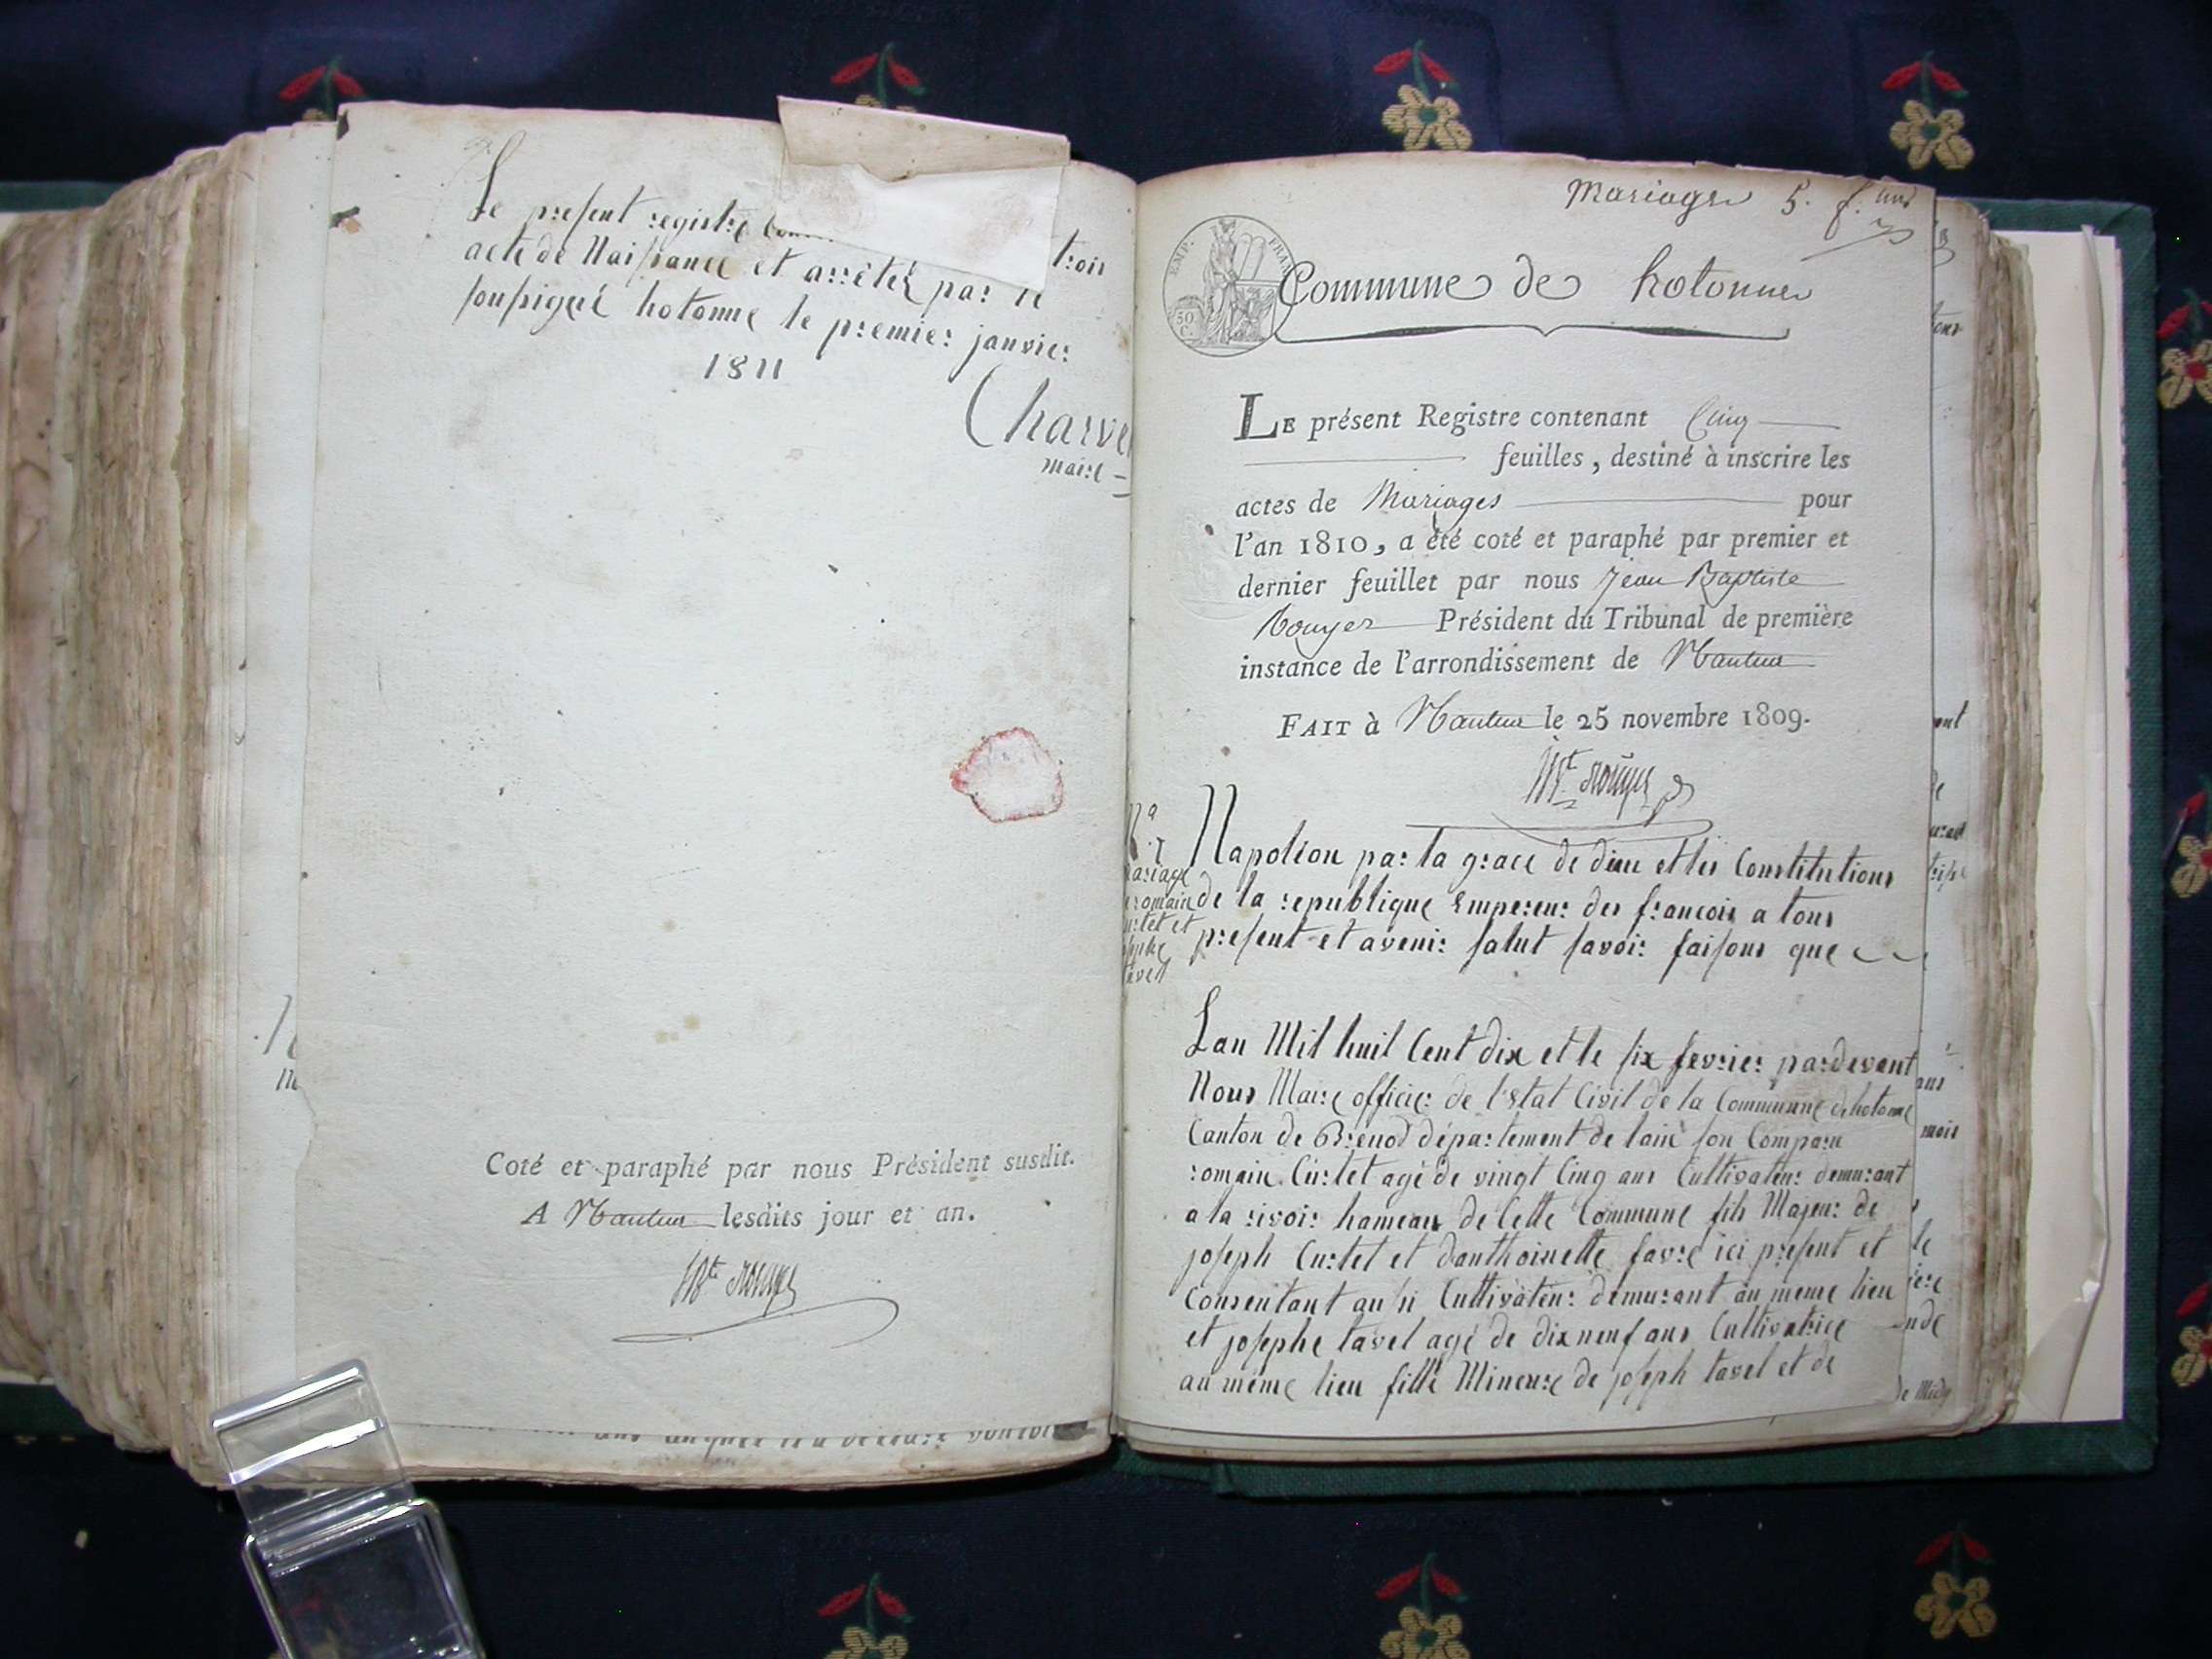 Le present registre trois
acte de Naissance et arrêtés par le
soussigné hotonne le premier janvier
1811
Charve
maire
Coté et paraphé par nous Président susdit.
A Nantua lesdits jour et an.
Bte Rouyer
Mariages 5. f.
EMP. FRAN
50 C.
Commune de hotonnes
LE présent Registre contenant Cinq
feuilles, destiné à inscrire les
actes de Mariages pour
l'an 1810, a été coté et paraphé par premier et
dernier feuillet par nous Jean Baptiste
Rouyer Président du Tribunal de première
instance de l'arrondissement de Nantua
FAIT à Nantua le 25 novembre 1809.
Bte Rouyer
ariage
romain
rtet et
Napoléon par la grace de dieu et les Constitutions
de la republique Empereur des francois a tous
present et avenir salut savoir faisons que
Lan Mil huit Cent dix et le six fevrier pardevant
Nous Maire officier de l'Etat Civil de la Commune de hotonne
Canton de Brenod département de lain son Comparu
romain Curtet agé de vingt Cinq ans Cultivateur demurant
a la rivoir hameau de Cette Commune fils Majeur de
joseph Curtet et danthoinette favre ici present et
Consentant aussi Cultivateur demurant au meme lieu
et josephe tavel agé de dix neuf ans Cultivatrice
au même lieu fille Mineure de joseph tavel et de